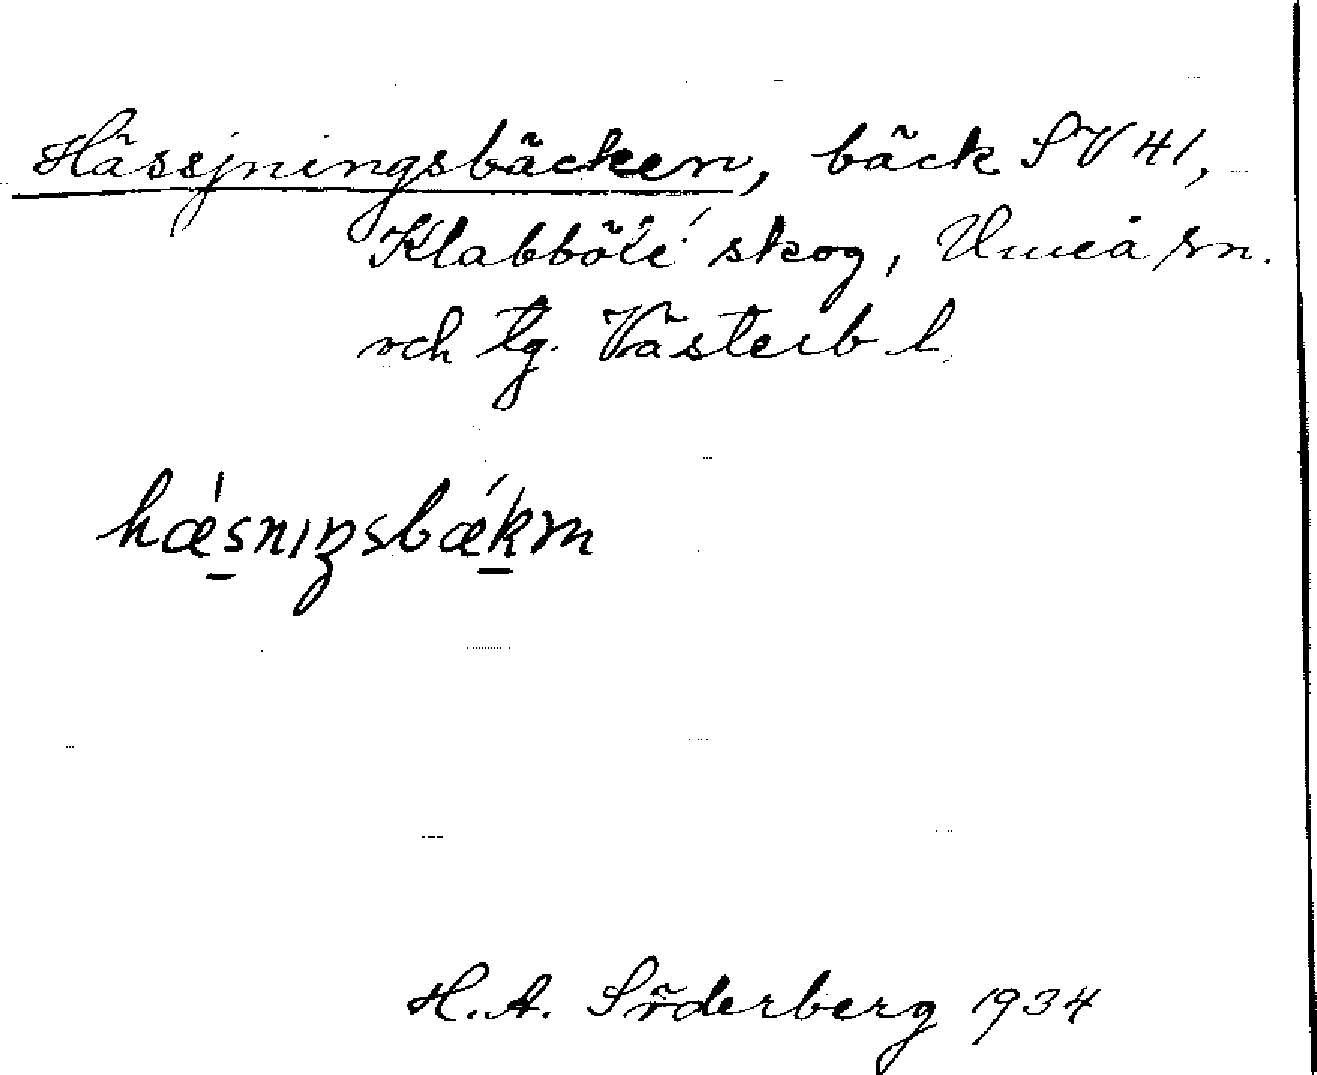 Hässjningsbäcken, bäck SV 41,
Klabböle skog, Umeå sn.
och tg. Västerb l.
hǽ̱snıŋsbǽḵm
H. A. Söderberg 1934